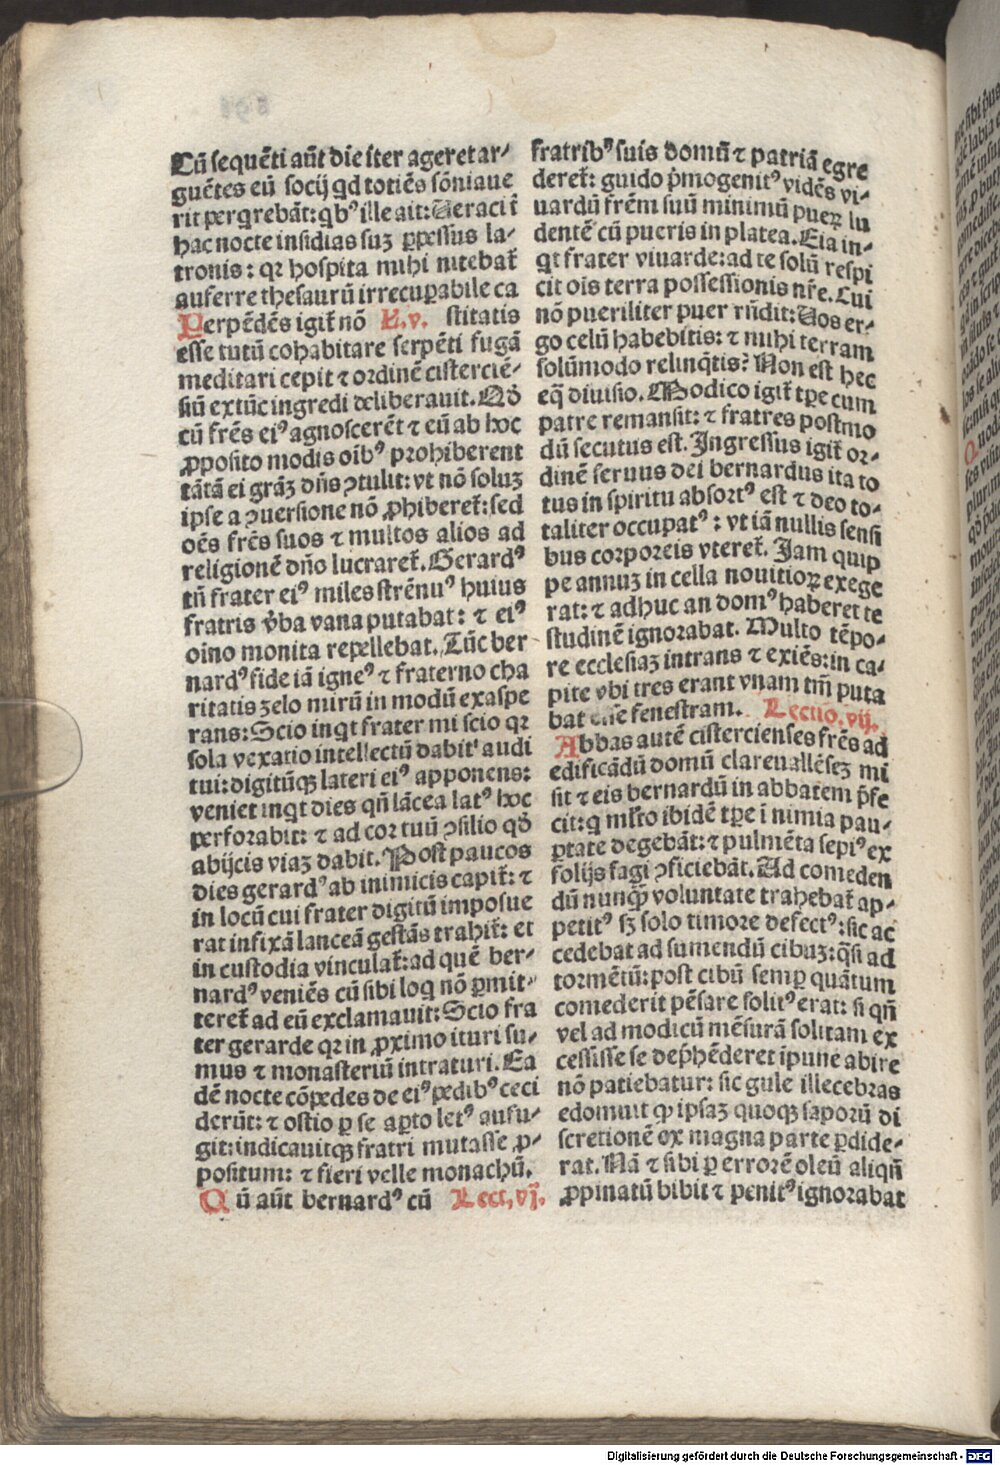 Cū sequēti aūt die iter ageret ar-
guētes eū socij qd totiēs sōniaue
rit pergrebāt: qbꝰ ille ait: Veraci ī
hac nocte insidias suꝫ ꝑpessus la-
tronis: qꝛ hospita mihi nitebat̄
auferre thesaurū irrecuꝑabile ca
Perpēdēs igit̄ nō L. v. stitatis
esse tutū cohabitare serpēti fugā
meditari cepit ⁊ ordinē cisterciē-
siū extūc ingredi deliberauit. Qḋ
cū frēs eiꝰ agnoscerēt ⁊ eū ab hoc
ꝓposito modis oībꝰ prohiberent
tātā ei grāꝫ dn̄s ꝯtulit: vt nō soluꝫ
ipse a ꝯuersione nō ꝓhiberet̄: sed
oēs frēs suos ⁊ multos alios ad
religionē dn̄o lucraret̄. Gerardꝰ
tn̄ frater eiꝰ miles strēnuꝰ huius
fratris v̇ba vana putabat: ⁊ eiꝰ
oīno monita repellebat. Tūc ber
nardꝰ fide iā igneꝰ ⁊ fraterno cha
ritatis zelo mirū in modū exaspe
rans: Scio inqt frater mi scio qꝛ
sola vexatio intellectū dabit audi
tui: digitūqꝫ lateri eiꝰ apponens:
veniet inqt dies qn̄ lācea latꝰ hoc
perforabit: ⁊ ad cor tuū ꝯsilio qḋ
abijcis viaꝫ dabit. Post paucos
dies gerardꝰ ab inimicis capit̄: ⁊
in locū cui frater digitū imposue
rat infixā lanceā gestās trahit̄: et
in custodia vinculat̄: ad quē ber-
nardꝰ veniēs cū sibi loq nō ꝑmit-
teret̄ ad eū exclamauit: Scio fra
ter gerarde qꝛ in ꝓximo ituri su-
mus ⁊ monasteriū intraturi. Ea
dē nocte cōpedes de eiꝰ pedibꝰ ceci
derūt: ⁊ ostio ꝑ se aꝑto letꝰ aufu-
git: indicauitqꝫ fratri mutasse ꝓ-
positum: ⁊ fieri velle monachū.
Qū aūt bernardꝰ cū Lect. vj.
fratribꝰ suis domū ⁊ patriā egre
deret̄: guido pͥmogenitꝰ vidēs vi-
uardū frēm suū minimū pueꝝ lu
dentē cū pueris in platea. Eia in-
qt frater viuarde: ad te solū respi
cit oīs terra possessionis nr̄e. Cui
nō pueriliter puer rn̄dit: Vos er-
go celū habebitis: ⁊ mihi terram
solūmodo relinqtis? Non est hec
eq̄ diuisio. Modico igit̄ tꝑe cum
patre remansit: ⁊ fratres postmo
dū secutus est. Ingressus igit̄ or-
dinē seruus dei bernardus ita to
tus in spiritu absortꝰ est ⁊ deo to-
taliter occupatꝰ: vt iā nullis sensi
bus corporeis vteret̄. Jam quip
pe annuꝫ in cella nouitioꝝ exege
rat: ⁊ adhuc an domꝰ haberet te
studinē ignorabat. Multo tēpo-
re ecclesiaꝫ intrans ⁊ exiēs: in ca-
pite vbi tres erant vnam tm̄ puta
bat esse fenestram. Lectio. vij.
Abbas autē cistercienses frēs ad
edificādū domū clareuallēseꝫ mi
sit ⁊ eis bernardū in abbatem p̄fe
cit: q ml̄to ibidē tꝑe ī nimia pau-
ꝑtate degebāt: ⁊ pulmēta sepiꝰ ex
folijs fagi ꝯficiebāt. Ad comeden
dū nunqͣ voluntate trahebat̄ ap-
petitꝰ sꝫ solo timore defectꝰ: sic ac
cedebat ad sumendū cibuꝫ: qͣsi ad
tormētū: post cibū semꝑ quātum
comederit pēsare solitꝰ erat: si qn̄
vel ad modicū mēsurā solitam ex
cessisse se dep̄hēderet īpune abire
nō patiebatur: sic gule illecebras
edomuit ꝙ ipsaꝫ quoqꝫ saporū di
scretionē ex magna parte ꝑdide-
rat. Nā ⁊ sibi ꝑ errorē oleū aliqn̄
ꝓpinatū bibit ⁊ penitꝰ ignorabat
Digitalisierung gefördert durch die Deutsche Forschungsgemeinschaft - DFG